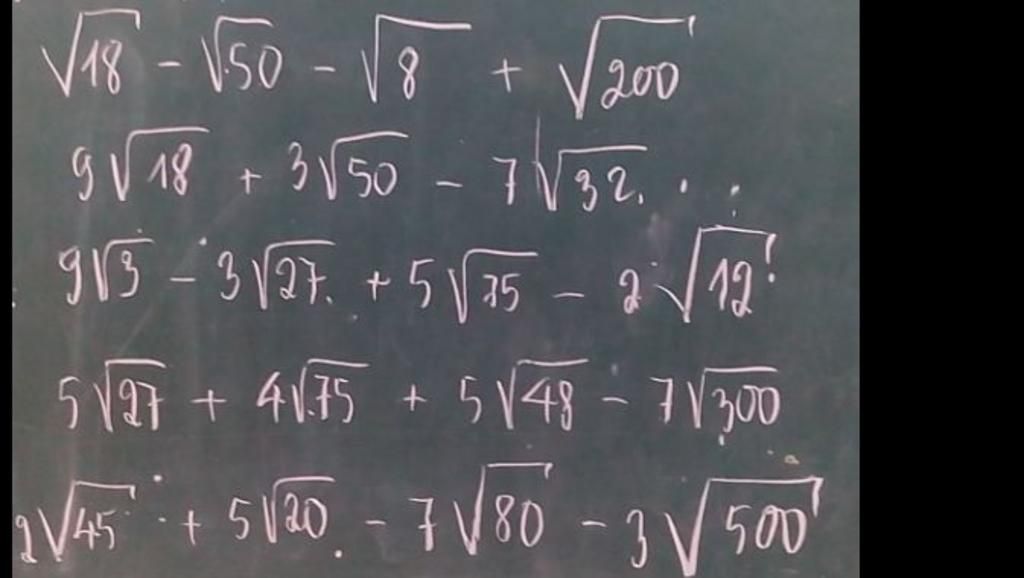 √18 - √50 - √8 + √200
9√18 + 3√50 - 7√32
9√3 - 3√27 + 5√75 - 2√12
5√27 + 4√75 + 5√48 - 7√300
2√45 + 5√20 - 7√80 - 3√500